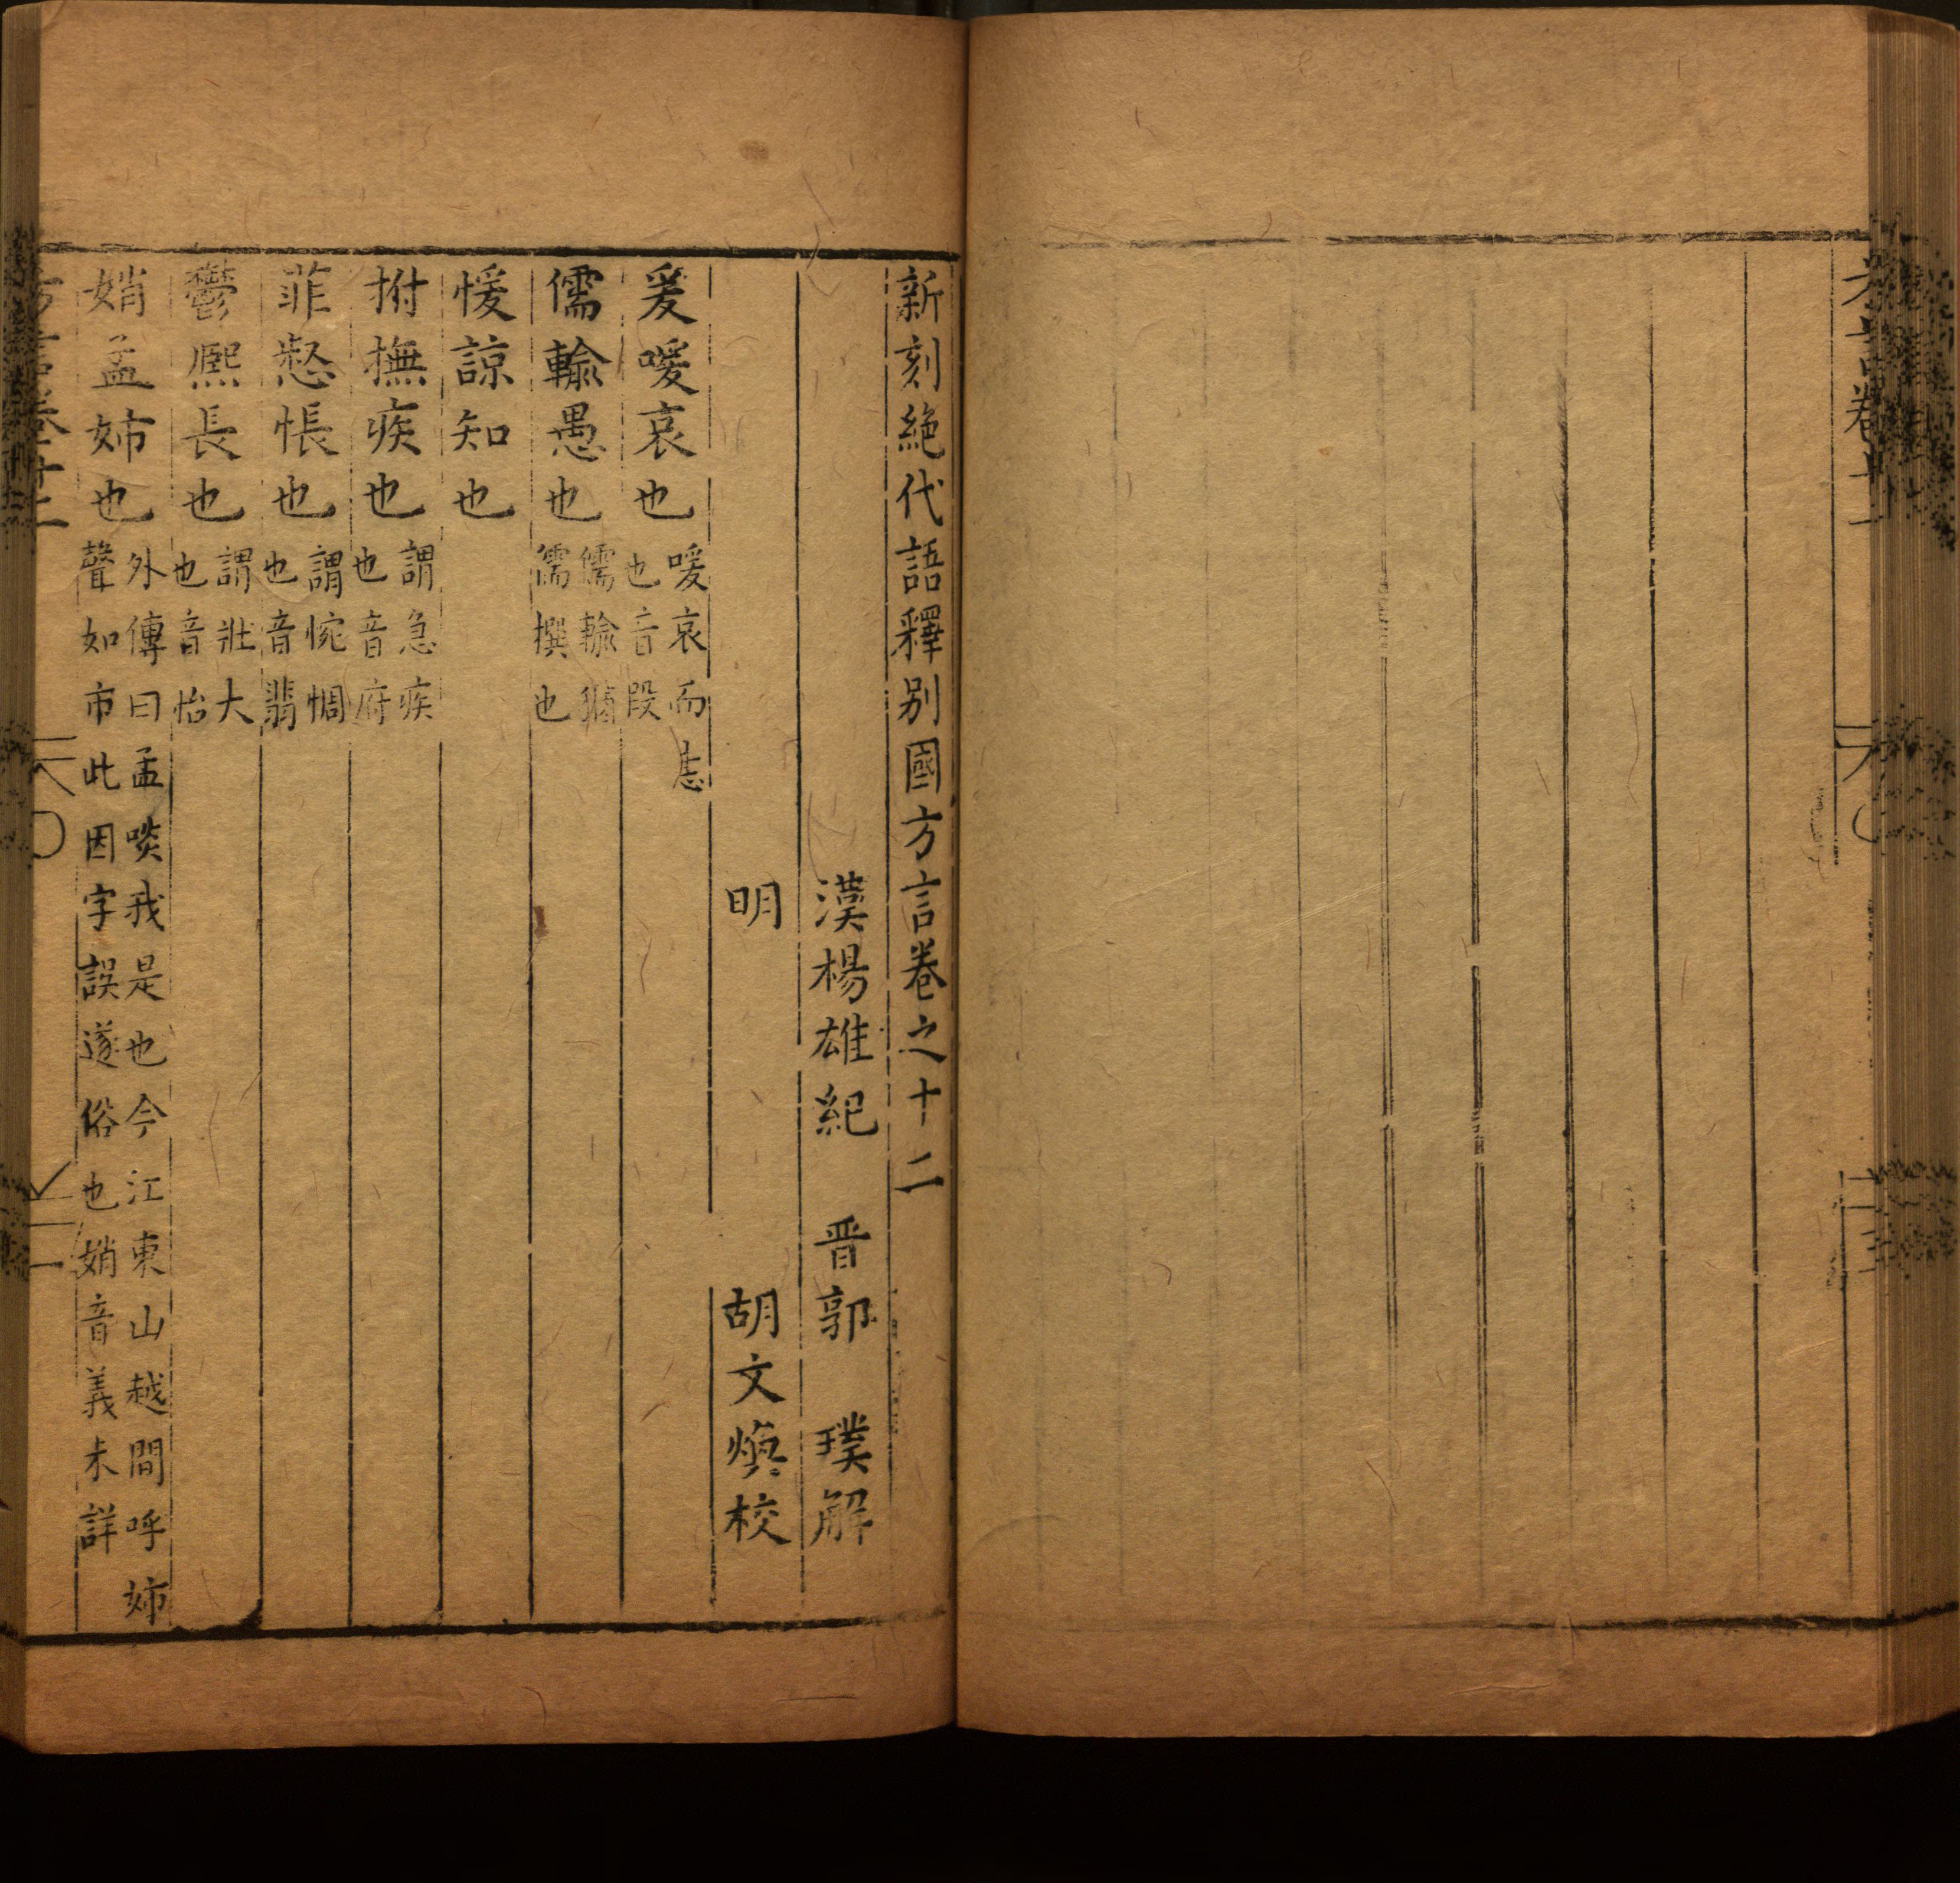 方言卷十一
新刻絶代語釋别國方言卷之十二
漢楊雄紀　晋郭　璞解
明　胡文煥校
爰嗳哀也嗳哀而恚也音段
儒輸愚也儒輸猶儒撰也
愋諒知也
拊撫疾也謂急疾也音府
菲惄悵也謂惋惆也音翡
鬱熙長也謂壯大也音怡
娋孟姉也外傳曰孟啖我是也今江東山越間呼姉聲如市此因字誤遂俗也娋音義未詳
方言卷十二